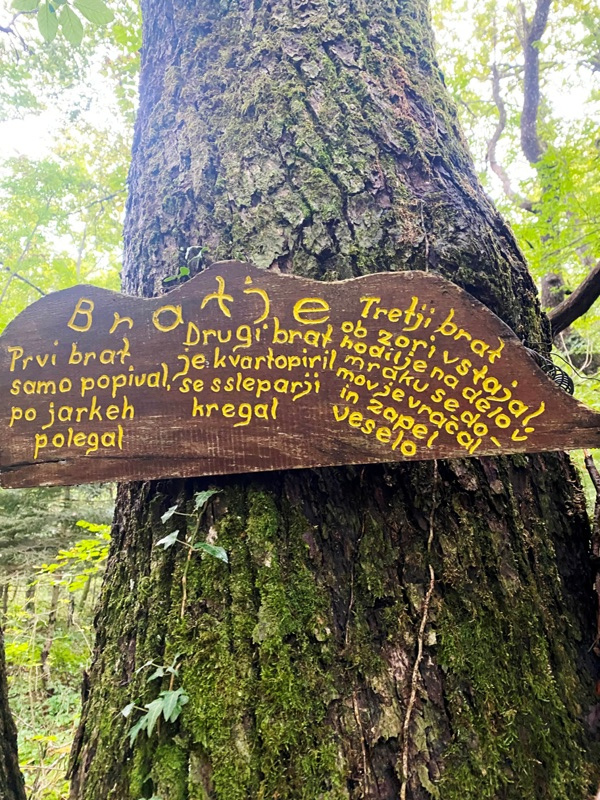 Bratje
Prvi brat
samo popival,
po jarkeh
polegal
Drugi brat
je kvartopiril
se ssleparji
kregal
Tretji brat
ob zori vstajal
hodilje na delo v
mraku se do-
mov je vračal
in zapel
veselo